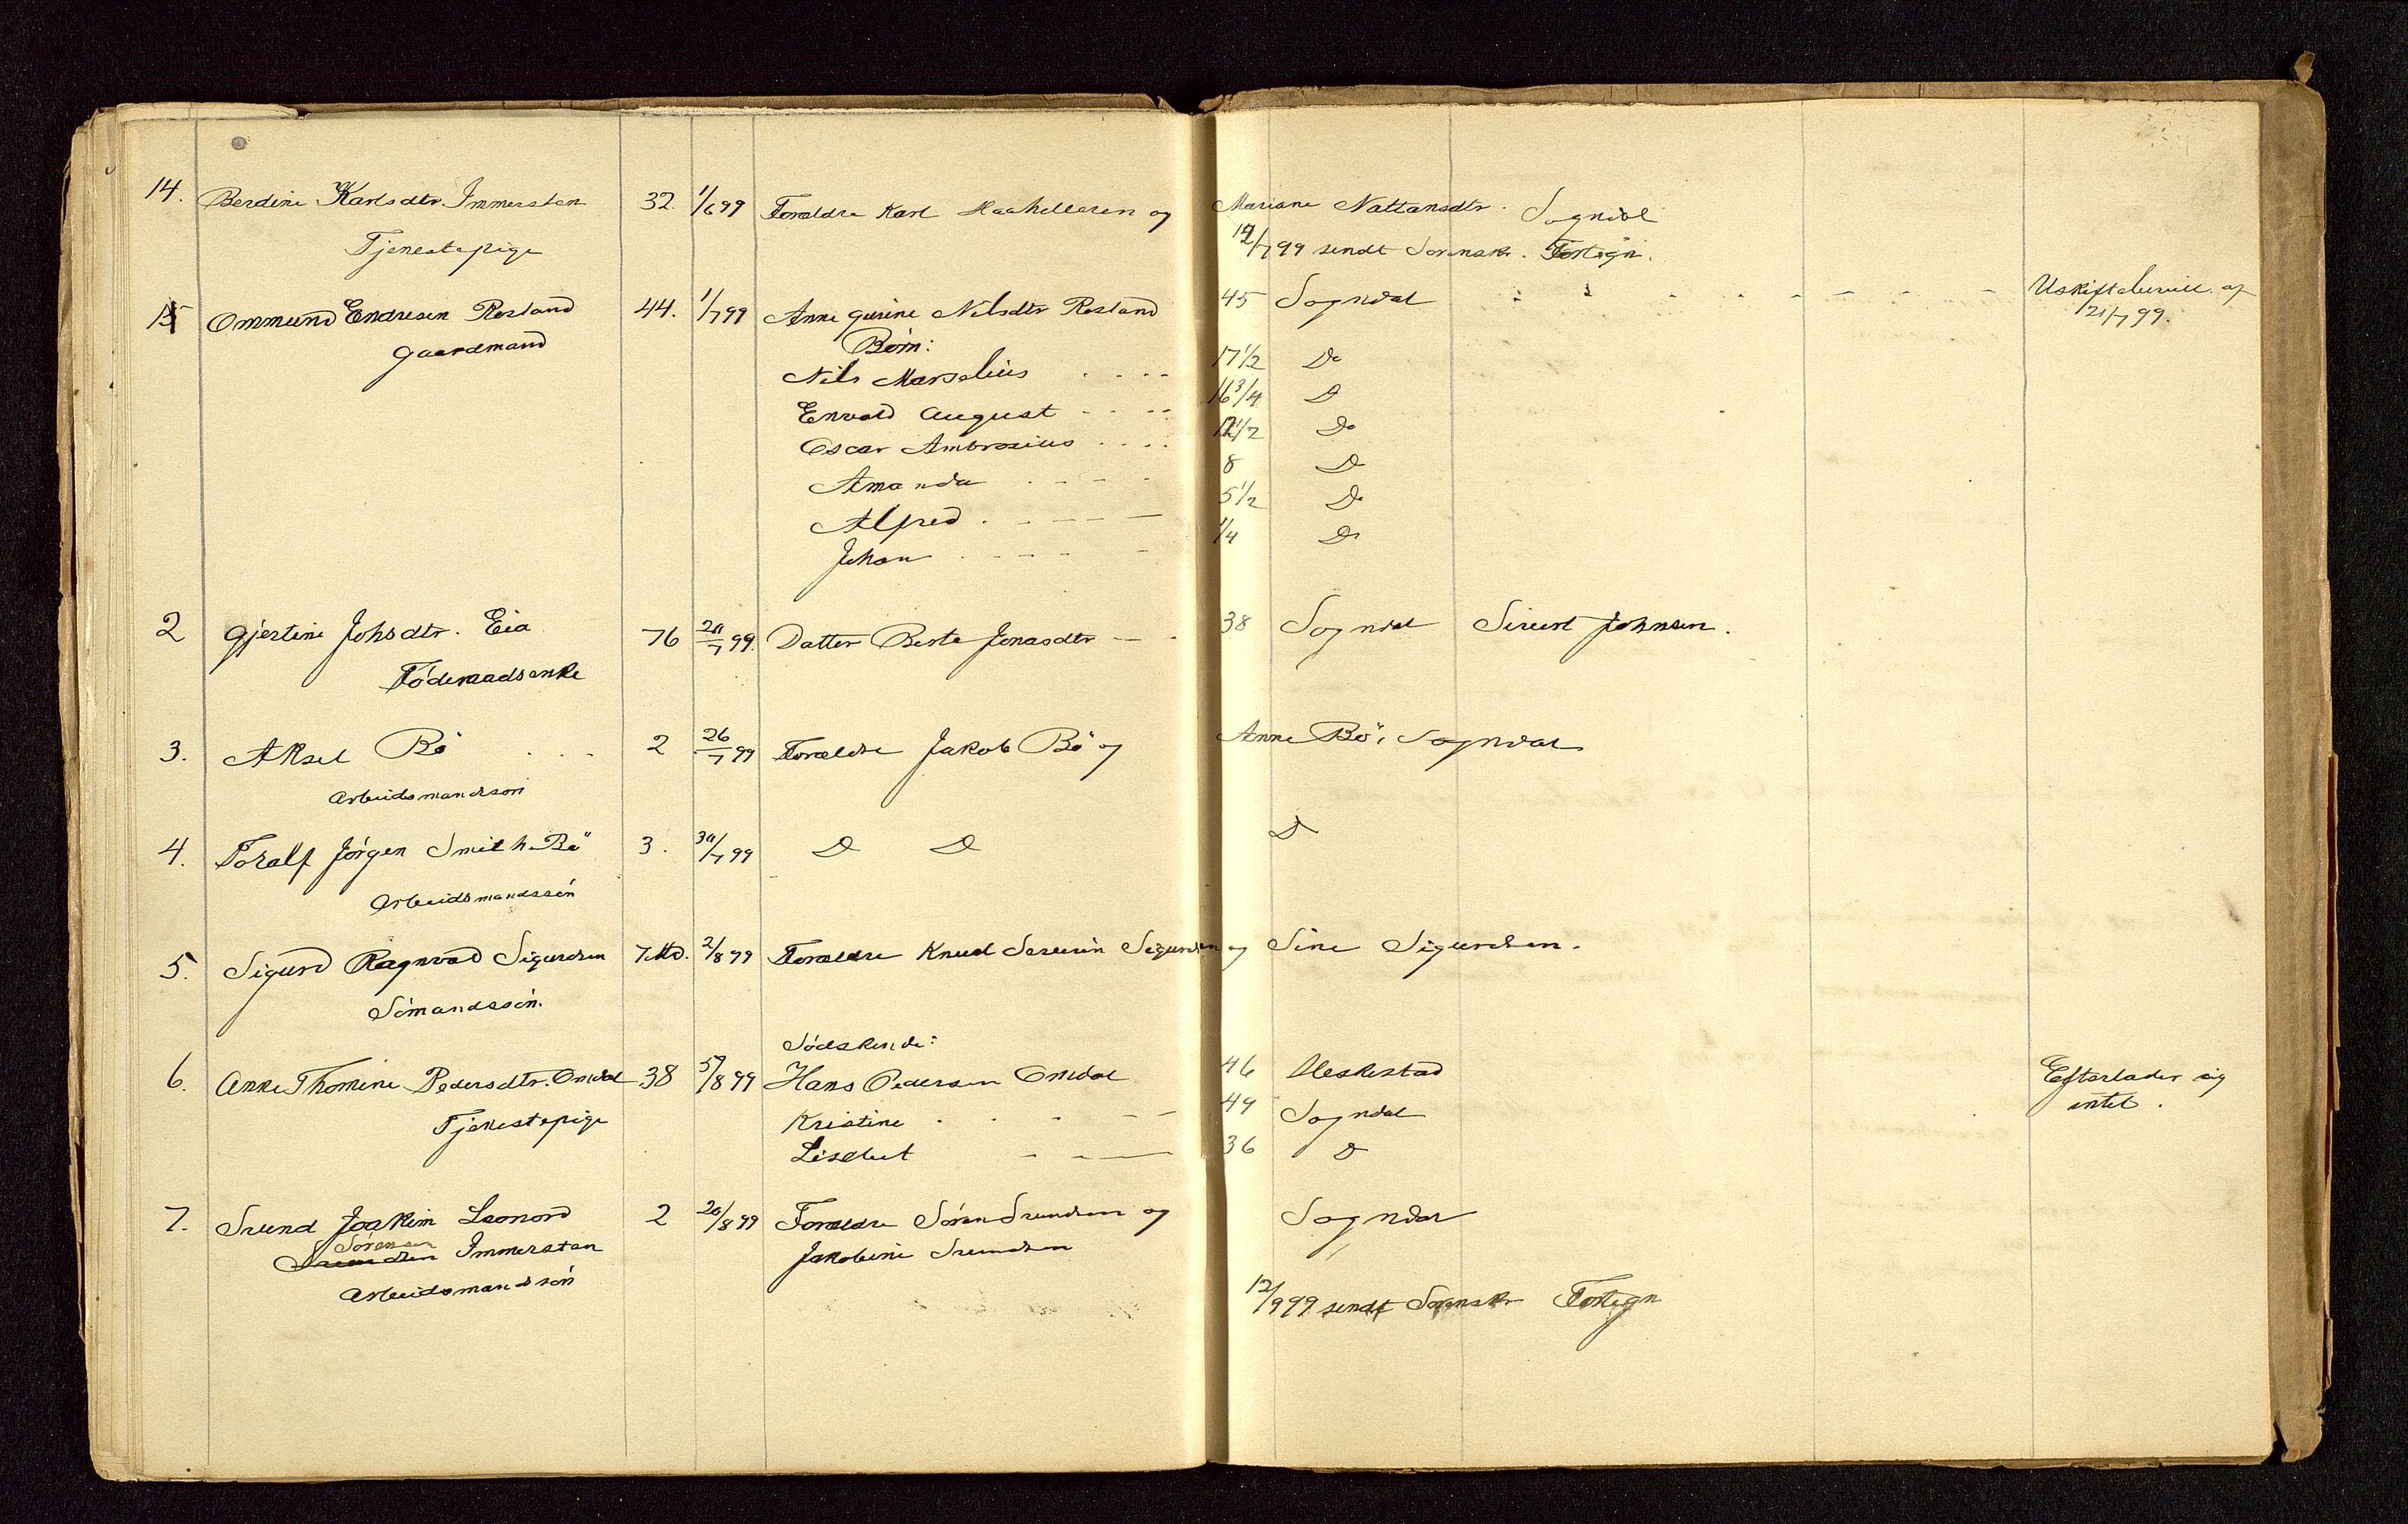 14. Berdine Karlsdtr. Immersten 32. 1/6 99 Forældre Karl Haakellesen og Mariane Nattansdtr. Sogndal
Tjenestepige 12/7 99 sendt Sorenskr. Fortegn.
15 Ommund Endresen Rosland 44. 1/7 99 Anne Gurine Nilsdtr Rosland 45 Sogndal Uskiftebevill. af
Gaardmand Börn: 21/7 99.
Nils Marselius 17 1/2 Do
Envald August 16 3/4 D
Oscar Ambrosius 12 1/2 Do
Amanda 8 D
Alfred 5 1/2 Do
Johan 1/4 Do
2 Gjertine Johsdtr. Eia 76 20/7 99. Datter Berte Jonasdtr 38 Sogndal Sivert Johnsen.
Föderaadsenke
3. Aksel Bö 2 26/7 99 Forældre Jakob Bö og Anne Bö, Sogndal
Arbeidsmandsön
4. Toralf Jörgen Smith Bö 3. 30/7 99 D D D
Arbeidsmandssön
5. Sigurd Ragnvad Sigurdsen 7 Md. 2/8 99 Forældre Knud Severin Sigurdsen og Sine Sigurdsen.
Sömandssön.
Södskende:
6. Anne Thomine Pedersdtr. Omdal 38 5/8 99 Hans Pedersen Omdal 46 Heskestad Efterlader sig
Tjenestepige Kristine 49 Sogndal intet.
Lisebet 36 D
7. Svend Joakim Leonord 2 20/8 99 Forældre Sören Svendsen og Sogndal
Sörensen
Svendsen Immersten Jakobine Svendsen
Arbeidsmandsön 12/9 99 sendt Sorenskr Fortegn